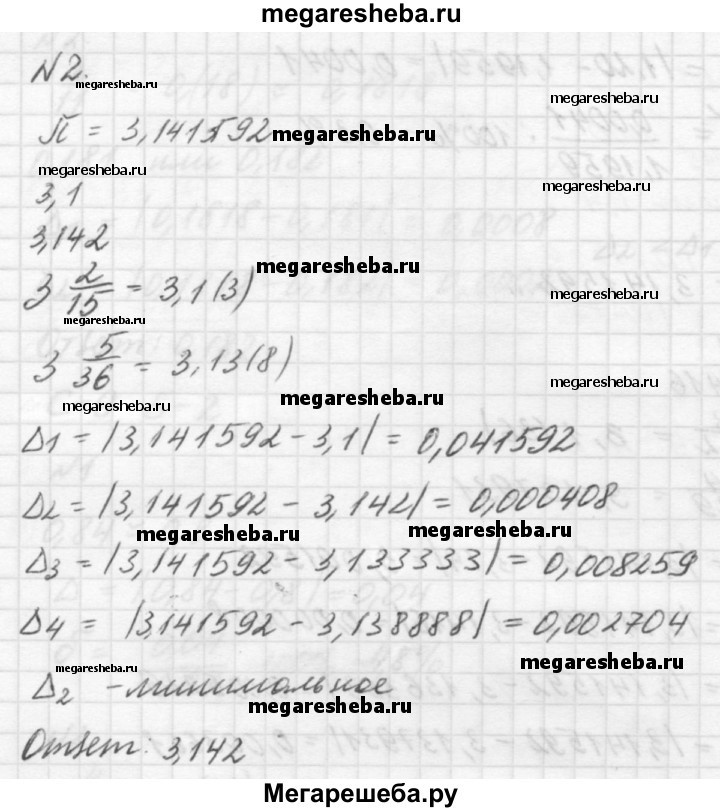 megaresheba.ru
N2.
megaresheba.ru
megaresheba.ru
π = 3,141592 megaresheba.ru
megaresheba.ru
megaresheba.ru
3,1
3,142
megaresheba.ru
3 2/15 = 3,1(3)
megaresheba.ru
megaresheba.ru
3 5/36 = 3,13(8)
megaresheba.ru
megaresheba.ru
Δ1 = |3,141592 - 3,1| = 0,041592
Δ2 = |3,141592 - 3,142| = 0,000408
megaresheba.ru
megaresheba.ru
Δ3 = |3,141592 - 3,133333| = 0,008259
Δ4 = |3,141592 - 3,138888| = 0,002704
megaresheba.ru
megaresheba.ru
Δ2 - минимальное
megaresheba.ru
Ответ: 3,142
Мегарешеба.ру